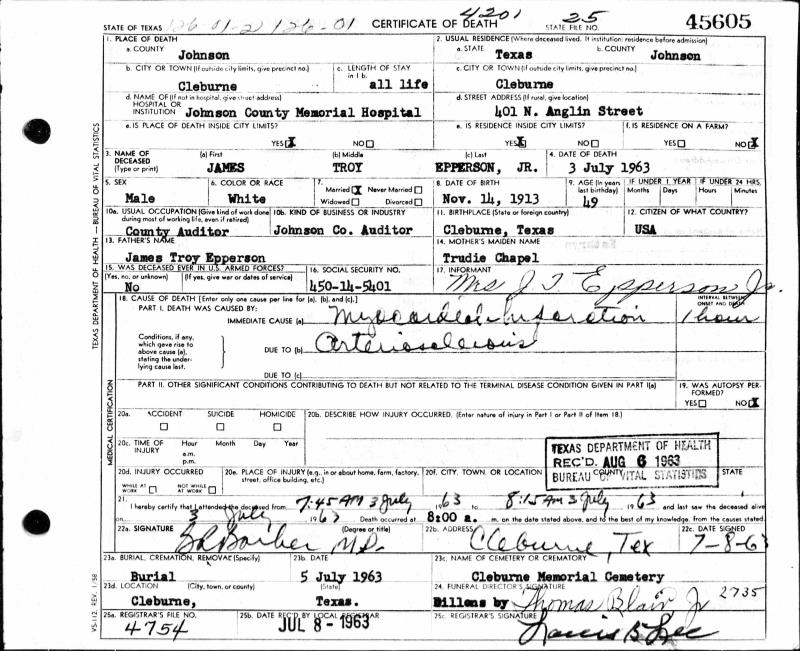 STATE OF TEXAS 126 01-2 126-01 CERTIFICATE OF DEATH 4201 STATE FILE NO. 25 45605
1. PLACE OF DEATH
a. COUNTY Johnson
2. USUAL RESIDENCE (Where deceased lived. If institution: residence before admission)
a. STATE Texas b. COUNTY Johnson
b. CITY OR TOWN (If outside city limits, give precinct no.) Cleburne
c. LENGTH OF STAY in 1 b. all life
c. CITY OR TOWN (If outside city limits, give precinct no.) Cleburne
d. NAME OF (If not in hospital, give street address) HOSPITAL OR INSTITUTION Johnson County Memorial Hospital
d. STREET ADDRESS (If rural, give location) 401 N. Anglin Street
e. IS PLACE OF DEATH INSIDE CITY LIMITS? YES X NO
e. IS RESIDENCE INSIDE CITY LIMITS? YES X NO
f. IS RESIDENCE ON A FARM? YES NO X
3. NAME OF DECEASED (Type or print) (a) First JAMES (b) Middle TROY (c) Last EPPERSON, JR.
4. DATE OF DEATH 3 July 1963
5. SEX Male
6. COLOR OR RACE White
7. Married X Never Married Widowed Divorced
8. DATE OF BIRTH Nov. 14, 1913
9. AGE (In years last birthday) 49
IF UNDER 1 YEAR Months Days
IF UNDER 24 HRS. Hours Minutes
10a. USUAL OCCUPATION (Give kind of work done during most of working life, even if retired) County Auditor
10b. KIND OF BUSINESS OR INDUSTRY Johnson Co. Auditor
11. BIRTHPLACE (State or foreign country) Cleburne, Texas
12. CITIZEN OF WHAT COUNTRY? USA
13. FATHER'S NAME James Troy Epperson
14. MOTHER'S MAIDEN NAME Trudie Chapel
15. WAS DECEASED EVER IN U.S. ARMED FORCES? (Yes, no, or unknown) No (If yes, give war or dates of service)
16. SOCIAL SECURITY NO. 450-14-5401
17. INFORMANT Mrs J T Epperson Jr.
18. CAUSE OF DEATH [Enter only one cause per line for (a), (b), and (c).]
INTERVAL BETWEEN ONSET AND DEATH
PART I. DEATH WAS CAUSED BY:
IMMEDIATE CAUSE (a) Myocardial Infarction 1 hour
Conditions, if any, which gave rise to above cause (a), stating the underlying cause last.
DUE TO (b) Arteriosclerosis
DUE TO (c)
PART II. OTHER SIGNIFICANT CONDITIONS CONTRIBUTING TO DEATH BUT NOT RELATED TO THE TERMINAL DISEASE CONDITION GIVEN IN PART I(a)
19. WAS AUTOPSY PERFORMED? YES NO X
20a. ACCIDENT SUICIDE HOMICIDE
20b. DESCRIBE HOW INJURY OCCURRED. (Enter nature of injury in Part I or Part II of Item 18.)
20c. TIME OF INJURY Hour Month Day Year
a.m.
p.m.
TEXAS DEPARTMENT OF HEALTH
REC'D. AUG 6 1963
BUREAU OF VITAL STATISTICS
20d. INJURY OCCURRED WHILE AT WORK NOT WHILE AT WORK
20e. PLACE OF INJURY (e.g., in or about home, farm, factory, street, office building, etc.)
20f. CITY, TOWN, OR LOCATION COUNTY STATE
21. I hereby certify that I attended the deceased from 7:45 AM 3 July 1963 to 8:15 AM 3 July 1963 and last saw the deceased alive
on 3 July 1963 Death occurred at 8:00 a. m. on the date stated above, and to the best of my knowledge, from the causes stated.
22a. SIGNATURE (Degree or title) Barber M.D.
22b. ADDRESS Cleburne, Tex
22c. DATE SIGNED 7-8-63
23a. BURIAL, CREMATION, REMOVAL (Specify) Burial
23b. DATE 5 July 1963
23c. NAME OF CEMETERY OR CREMATORY Cleburne Memorial Cemetery
23d. LOCATION (City, town, or county) (State) Cleburne, Texas.
24. FUNERAL DIRECTOR'S SIGNATURE Dillons by Thomas Blair Jr 2735
25a. REGISTRAR'S FILE NO. 4754
25b. DATE REC'D BY LOCAL REGISTRAR JUL 8 - 1963
25c. REGISTRAR'S SIGNATURE
TEXAS DEPARTMENT OF HEALTH — BUREAU OF VITAL STATISTICS
MEDICAL CERTIFICATION
VS-112 REV. 1/58